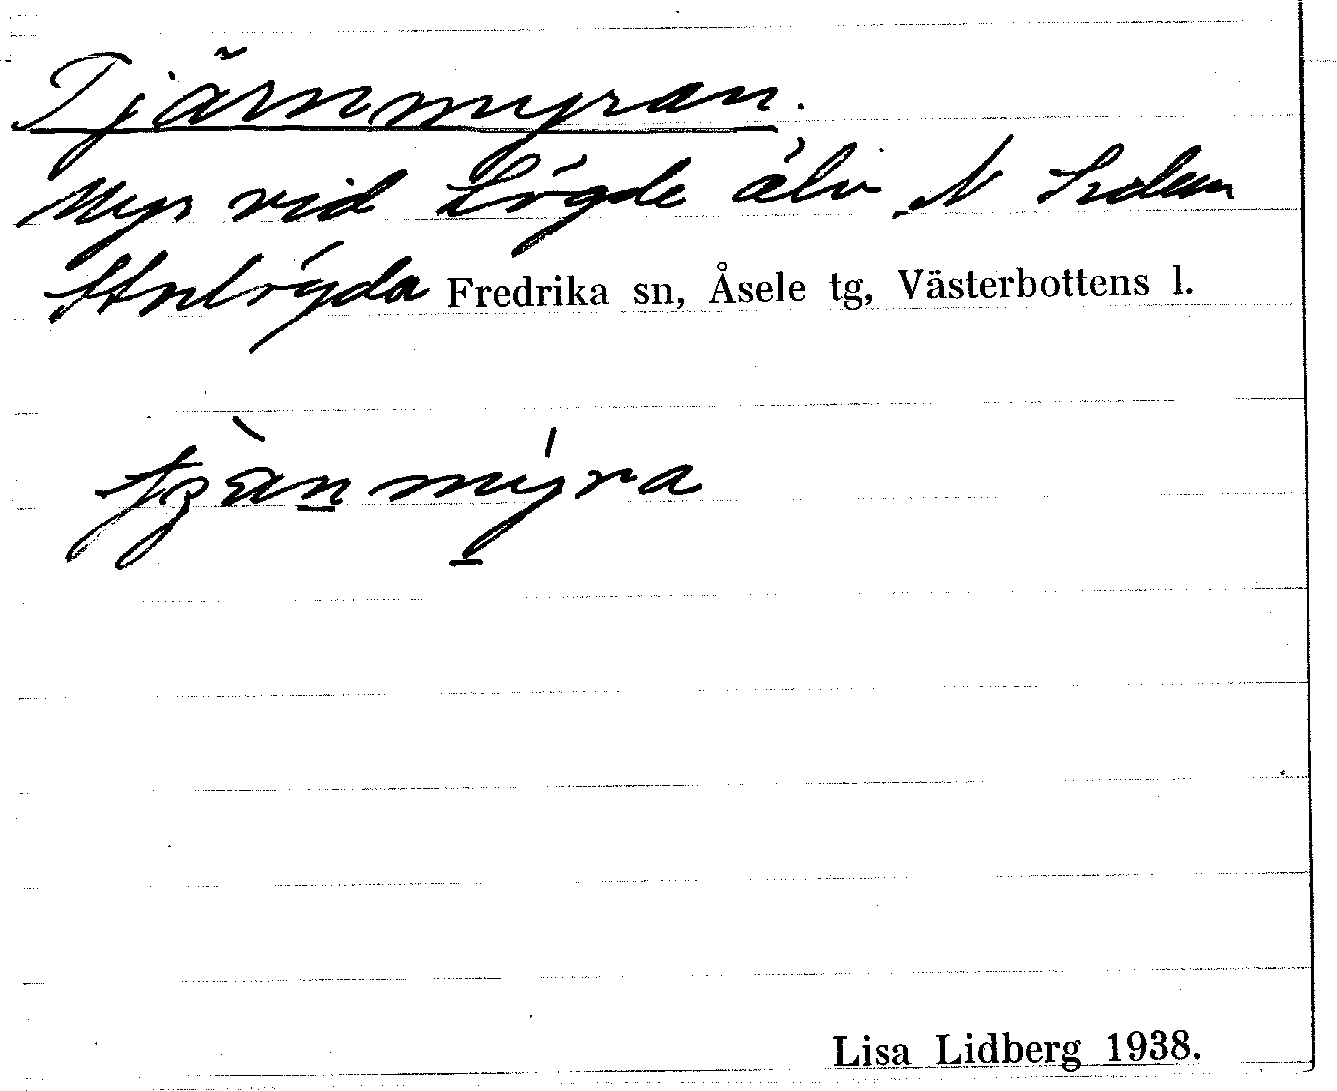 Tjärnmyran.
Myr vid Lögde älv, N
Fredrika sn, Åsele tg, Västerbottens l.
Lisa Lidberg 1938.